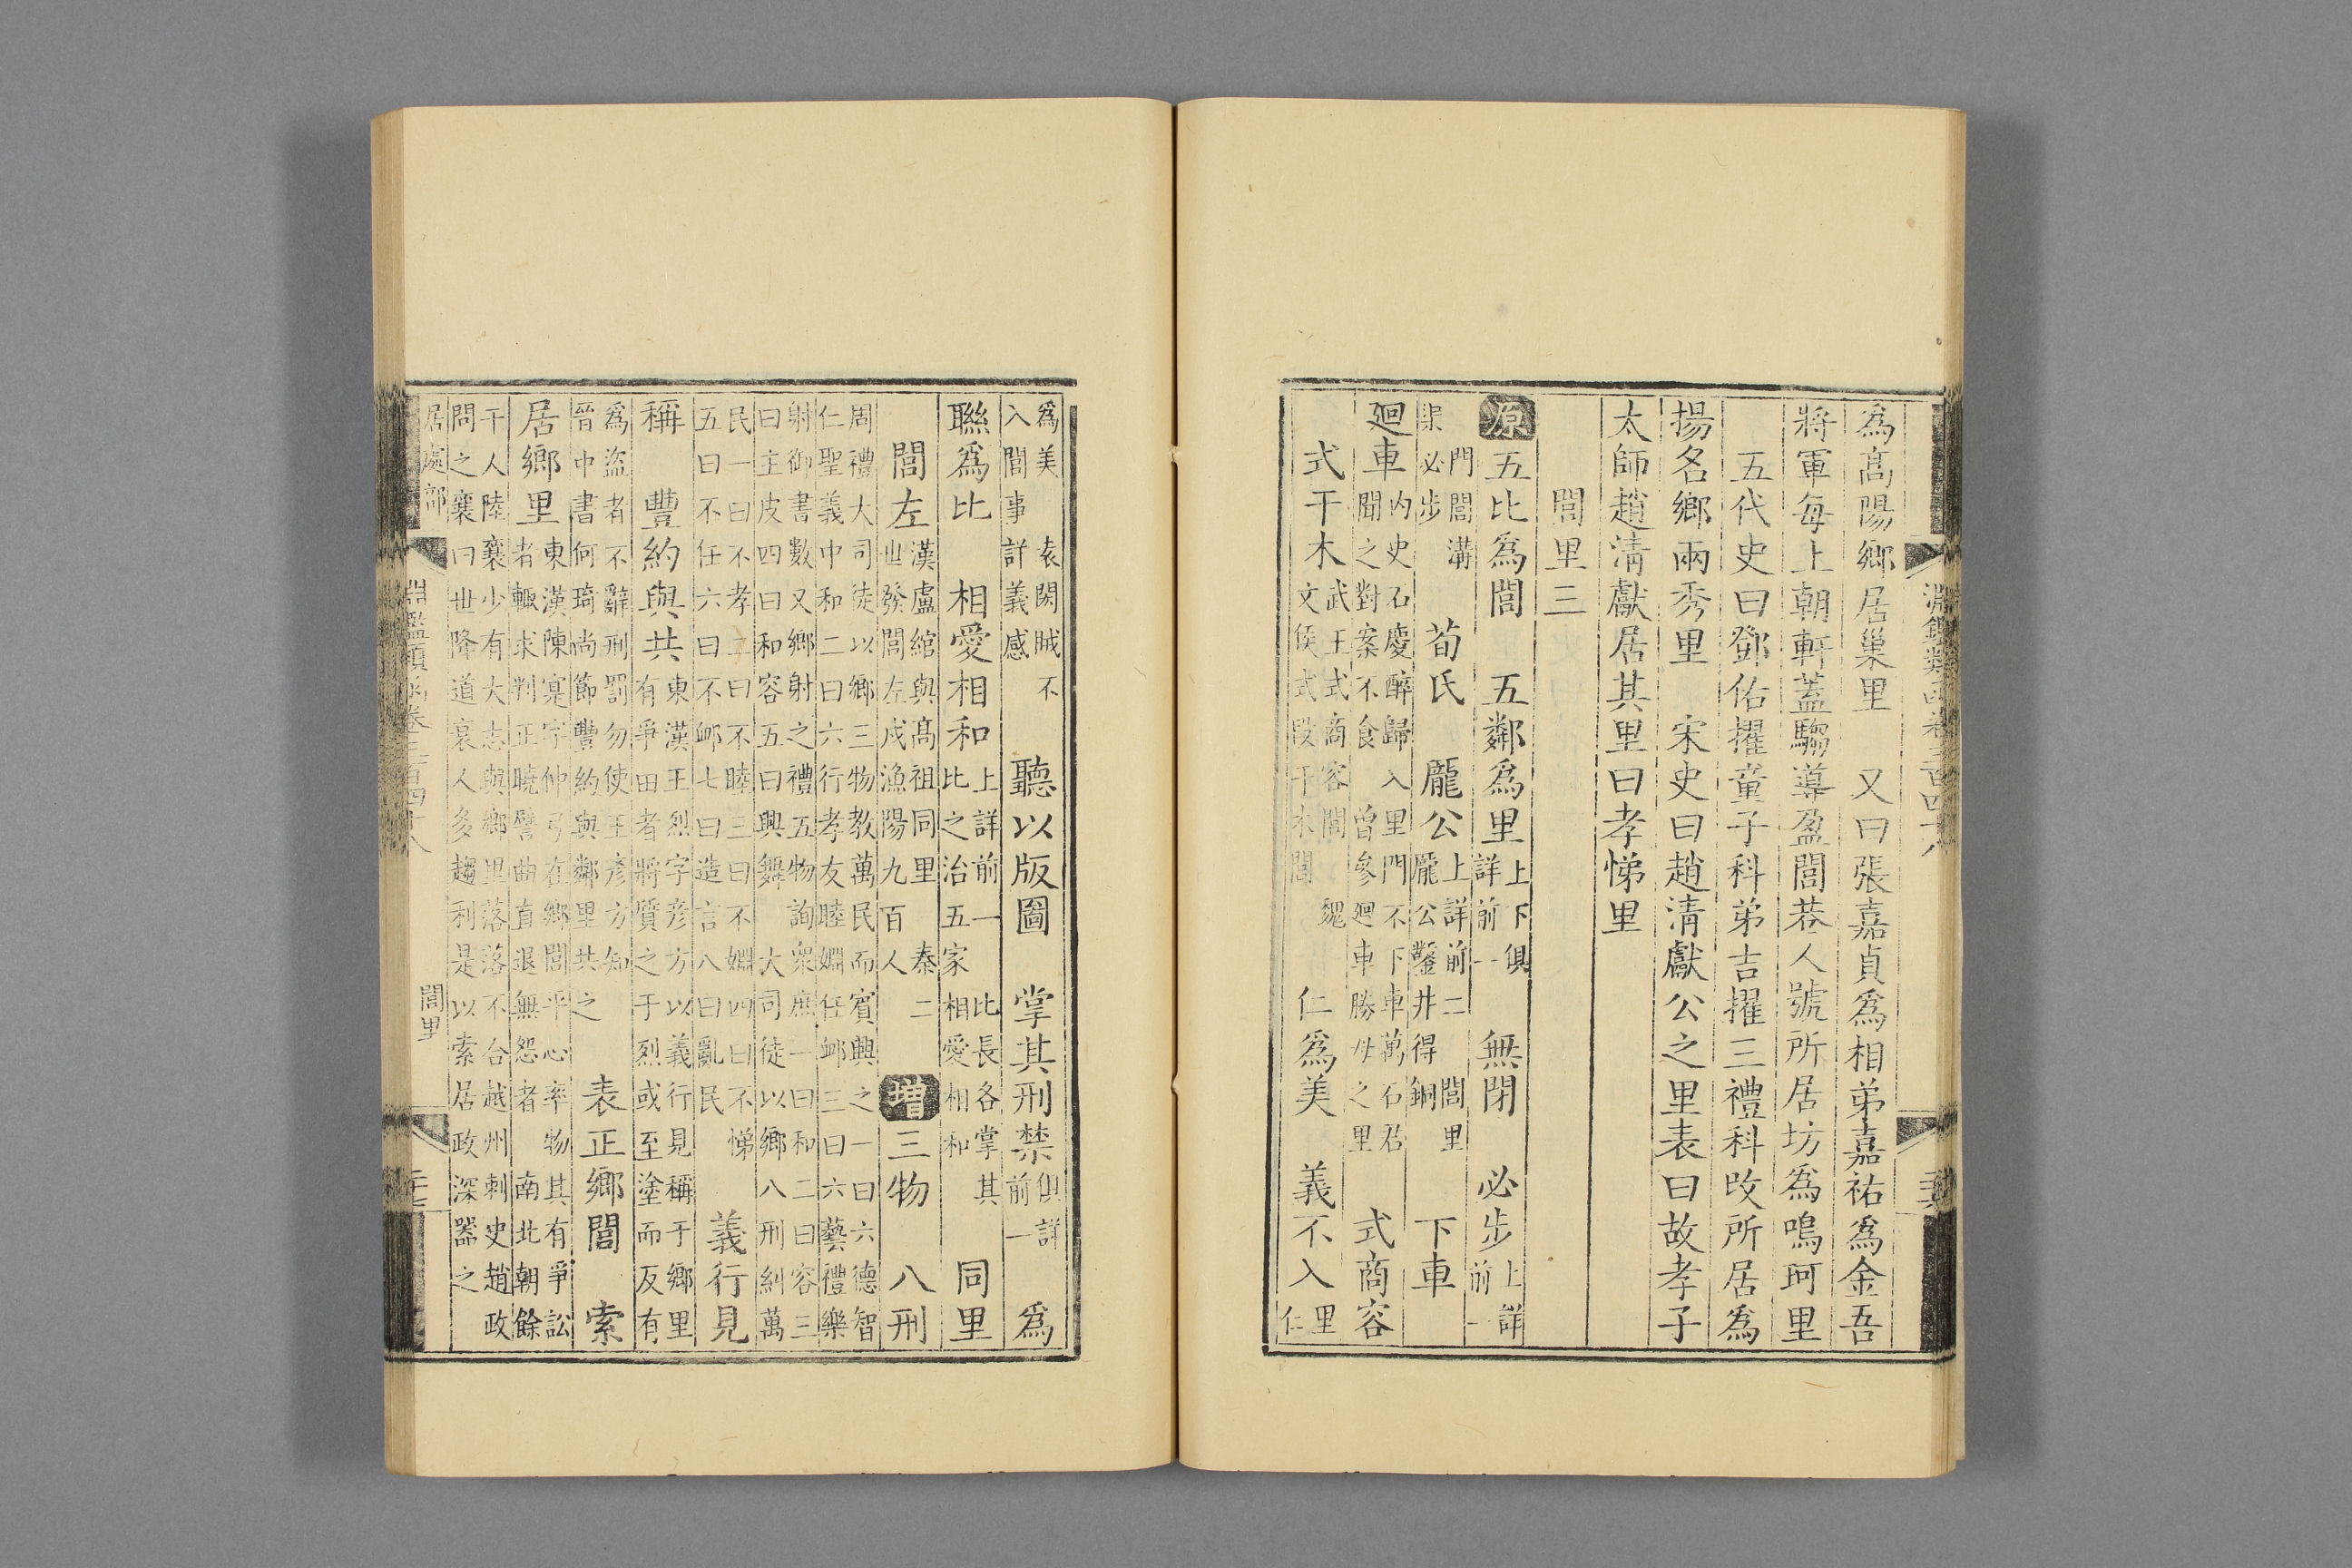 淵鑑類函卷三百四十八
為髙陽鄉居巢里　又曰張嘉貞爲相弟嘉祐爲金吾
將軍每上朝軒蓋騶導盈閭巷人號所居坊爲鳴珂里
五代史曰鄧佑擢童子科弟吉擢三禮科改所居爲
揚名鄉兩秀里　宋史曰趙清獻公之里表曰故孝子
太師趙清獻居其里曰孝悌里
閭里三
原五比爲閭　五鄰爲里上下俱詳前一　無閉　必步上詳前一
門閭溝渠必步　荀氏　龐公上詳前二閭里龐公鑿井得銅　下車
廻車内史石慶醉歸入里門不下車萬石君聞之對案不食　曾參廻車勝母之里　式商容
式干木武王式商容閭　魏文侯式段干木閭　仁爲美　義不入里仁
爲美　袁閎賊不入閭事詳義感　聽以版圖　掌其刑禁俱詳前一　爲
聯爲比　相愛相和上詳前一　比長各掌其比之治五家相愛相和　同里
閭左漢盧綰與髙祖同里　秦二世發閭左戍漁陽九百人　增三物　八刑
周禮大司徒以鄉三物教萬民而賓興之一曰六德智仁聖義中和二曰六行孝友睦婣任卹三曰六藝禮樂
射御書數　又鄉射之禮五物詢衆庶一曰和二曰容三曰主皮四曰和容五曰興舞　大司徒以鄉八刑糾萬
民一曰不孝二曰不睦三曰不婣四曰不悌五曰不任六曰不卹七曰造言八曰亂民　義行見
稱　豐約與共東漢王烈字彦方以義行見稱于鄉里有爭田者將質之于烈或至塗而反有
爲盜者不辭刑罰勿使王彦方知　晉中書何琦尚節豐約與鄰里共之　表正鄉閭　索
居鄉里東漢陳寔字仲弓在鄉閭平心率物其有爭訟者輙求判正曉譬曲直退無怨者　南北朝餘
干人陸襄少有大志與鄉里落落不合越州刺史趙政問之襄曰世降道衰人多趨利是以索居政深器之
居處部　淵鑑類函卷三百四十八　閭里